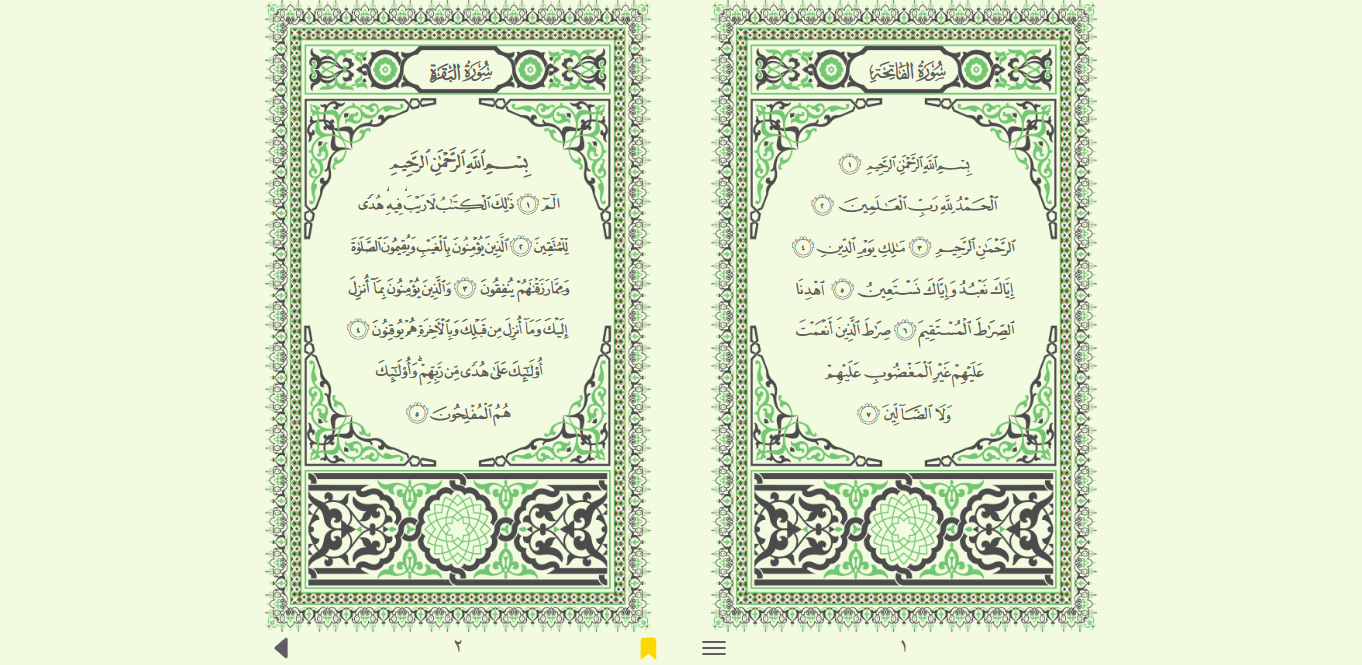 سُورَةُ الفَاتِحَةِ
بِسْمِ ٱللَّهِ ٱلرَّحْمَٰنِ ٱلرَّحِيمِ ١
ٱلْحَمْدُ لِلَّهِ رَبِّ ٱلْعَٰلَمِينَ ٢
ٱلرَّحْمَٰنِ ٱلرَّحِيمِ ٣ مَٰلِكِ يَوْمِ ٱلدِّينِ ٤
إِيَّاكَ نَعْبُدُ وَإِيَّاكَ نَسْتَعِينُ ٥ ٱهْدِنَا
ٱلصِّرَٰطَ ٱلْمُسْتَقِيمَ ٦ صِرَٰطَ ٱلَّذِينَ أَنْعَمْتَ
عَلَيْهِمْ غَيْرِ ٱلْمَغْضُوبِ عَلَيْهِمْ
وَلَا ٱلضَّآلِّينَ ٧
١
سُورَةُ البَقَرَةِ
بِسْمِ ٱللَّهِ ٱلرَّحْمَٰنِ ٱلرَّحِيمِ
الٓمٓ ١ ذَٰلِكَ ٱلْكِتَٰبُ لَا رَيْبَۛ فِيهِۛ هُدًى
لِّلْمُتَّقِينَ ٢ ٱلَّذِينَ يُؤْمِنُونَ بِٱلْغَيْبِ وَيُقِيمُونَ ٱلصَّلَوٰةَ
وَمِمَّا رَزَقْنَٰهُمْ يُنفِقُونَ ٣ وَٱلَّذِينَ يُؤْمِنُونَ بِمَآ أُنزِلَ
إِلَيْكَ وَمَآ أُنزِلَ مِن قَبْلِكَ وَبِٱلْءَاخِرَةِ هُمْ يُوقِنُونَ ٤
أُو۟لَٰٓئِكَ عَلَىٰ هُدًى مِّن رَّبِّهِمْۖ وَأُو۟لَٰٓئِكَ
هُمُ ٱلْمُفْلِحُونَ ٥
٢